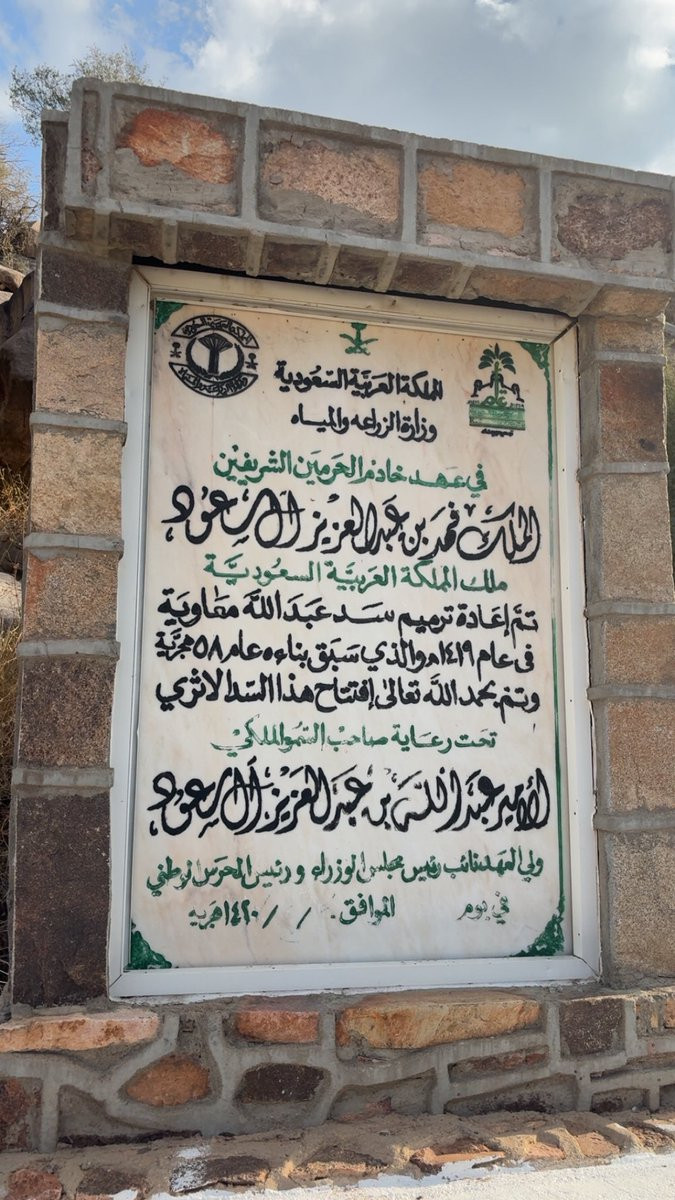 المملكة العربية السعودية
وزارة الزراعه والمياه
في عهد خادم الحرمين الشريفين
الملك فهد بن عبد العزيز آل سعود
ملك المملكة العربية السعودية
تم إعادة ترميم سد عبد الله معاوية
فى عام ١٤١٩هـ والذي سبق بناءه عام ٥٨ هجرية
وتم بحمد الله تعالى إفتتاح هذا السد الاثري
تحت رعاية صاحب السمو الملكي
الأمير عبد الله بن عبد العزيز آل سعود
ولي العهد نائب رئيس مجلس الوزراء ورئيس الحرس الوطني
في يوم الموافق / / ١٤٢٠هجريه